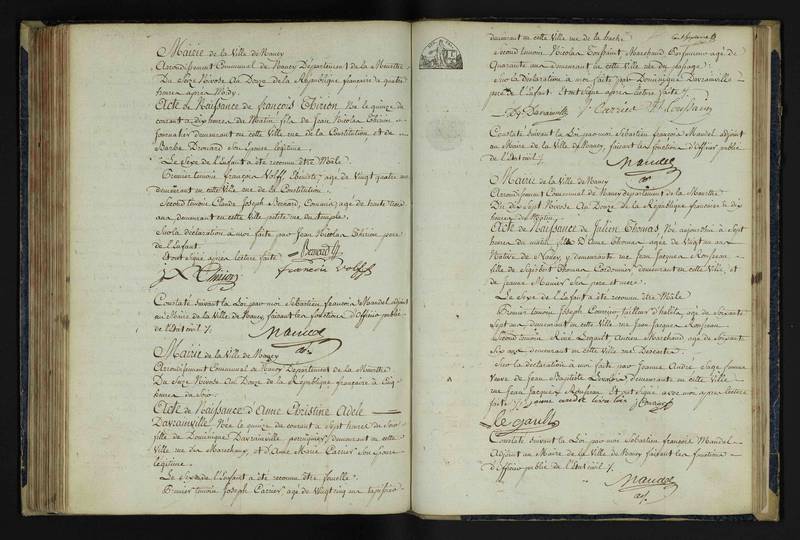 Mairie de la Ville de Nancy
Arrondissement Communal de Nancy Département de la Meurthe
Du Seize Nivose An Douze de la République française à quatre
heures après Midy.
Acte de Naissance de françois Thirion Né le quinze du
courant à dix heures du Matin fils de Jean Nicolas Thirion
Journalier demeurant en cette Ville rue de la Constitution et de
Barbe Drouard son Epouse légitime.
Le Sexe de l'Enfant a été reconnu être Mâle.
Premier temoin françois Wolff, Ebeniste, agé de Vingt quatre ans
demeurant en cette Ville rue de la Constitution.
Second temoin Claude Joseph Bernard, Commis, agé de trente trois
ans, demeurant en cette Ville petite rue du temple.
Sur la déclaration à moi faite par Jean Nicolas Thirion pere
de l'Enfant.
Et ont signé après lecture faite
Bernard
J N Thirion françois Wolff
Constaté suivant la Loi par moi Sébastien françois Mandel adjoint
au Maire de la Ville de Nancy, faisant les fonctions d'Officier public
de l'Etat civil /.
Mandel
adj.
Mairie de la Ville de Nancy
Arrondissement Communal de Nancy Département de la Meurthe
Du Seize Nivose An Douze de la République française à Cinq
heures du Soir.
Acte de Naissance d'Anne Christine Adele
Davrainville Née le quinze du courant à sept heures du Soir
fille de Dominique Davrainville perruquier, demeurant en cette
Ville rue des Marechaux, et d'Anne Marie Carrier son Epouse
légitime.
Le Sexe de l'Enfant a été reconnu être femelle.
Premier temoin Joseph Carrier, agé de Vingt cinq ans tapissier
demeurant en cette Ville rue de la hache
Second temoin Nicolas Toussaint Marchand agé de
Quarante ans demeurant en cette Ville rue du passage.
Sur la Déclaration à moi faite par Dominique Davrainville
pere de l'Enfant. Et ont signé après lecture faite /.
Dq Davrainville J Carrier N Toussain
Constaté suivant la Loi par moi Sébastien françois Mandel adjoint
au Maire de la Ville de Nancy, faisant les fonctions d'Officier public
de l'Etat civil /.
Mandel
adj.
Mairie de la Ville de Nancy
Arrondissement Communal de Nancy département de la Meurthe
Du dix Sept Nivose An Douze de la République française à dix
heures du Matin.
Acte de Naissance de Julien Thomas Né aujourdhui à Sept
heures du matin, fils d'Anne Thomas agée de Vingt un ans
Native de Nancy, y demeurante rue Jean Jacques Rousseau
fille de Sigisbert Thomas Cordonnier, demeurant en cette Ville, et
de Jeanne Munier Ses pere et mere.
Le Sexe de l'Enfant a été reconnu être Mâle.
Premier temoin Joseph tailleur d'habits, agé de soixante
Sept ans, demeurant en cette Ville rue Jean Jacques Rousseau
Second temoin René Legault Ancien Marchand, agé de Soixante
Six ans demeurant en cette Ville rue Descartes.
Sur la déclaration à moi faite par Jeanne André Sage femme
Veuve de Jean Baptiste demeurante en cette Ville
rue Jean Jacques Rousseau. Et ont signé avec moi après lecture
faite /. jeanne andré
Legault
Constaté suivant la Loi par moi Sébastien françois Mandel
Adjoint au Maire de la Ville de Nancy faisant les fonctions
d'Officier public de l'Etat civil /.
Mandel
adj.